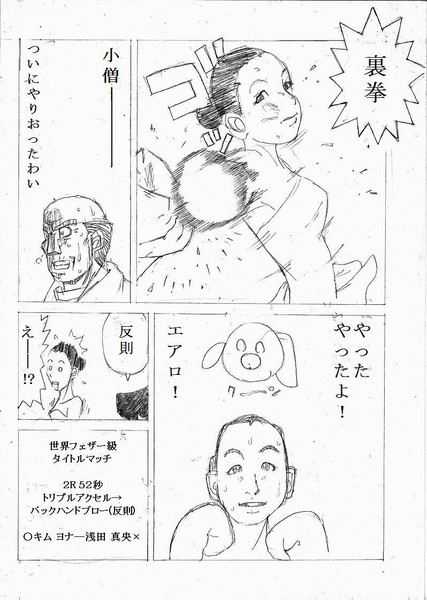 裏拳
ゴッ
小僧―――
ついにやりおったわい
やった
やったよ！
エアロ！
クーン
反則
え――!?
世界フェザー級
タイトルマッチ
2R 52秒
トリプルアクセル→
バックハンドブロー(反則)
○キム ヨナ―浅田 真央×